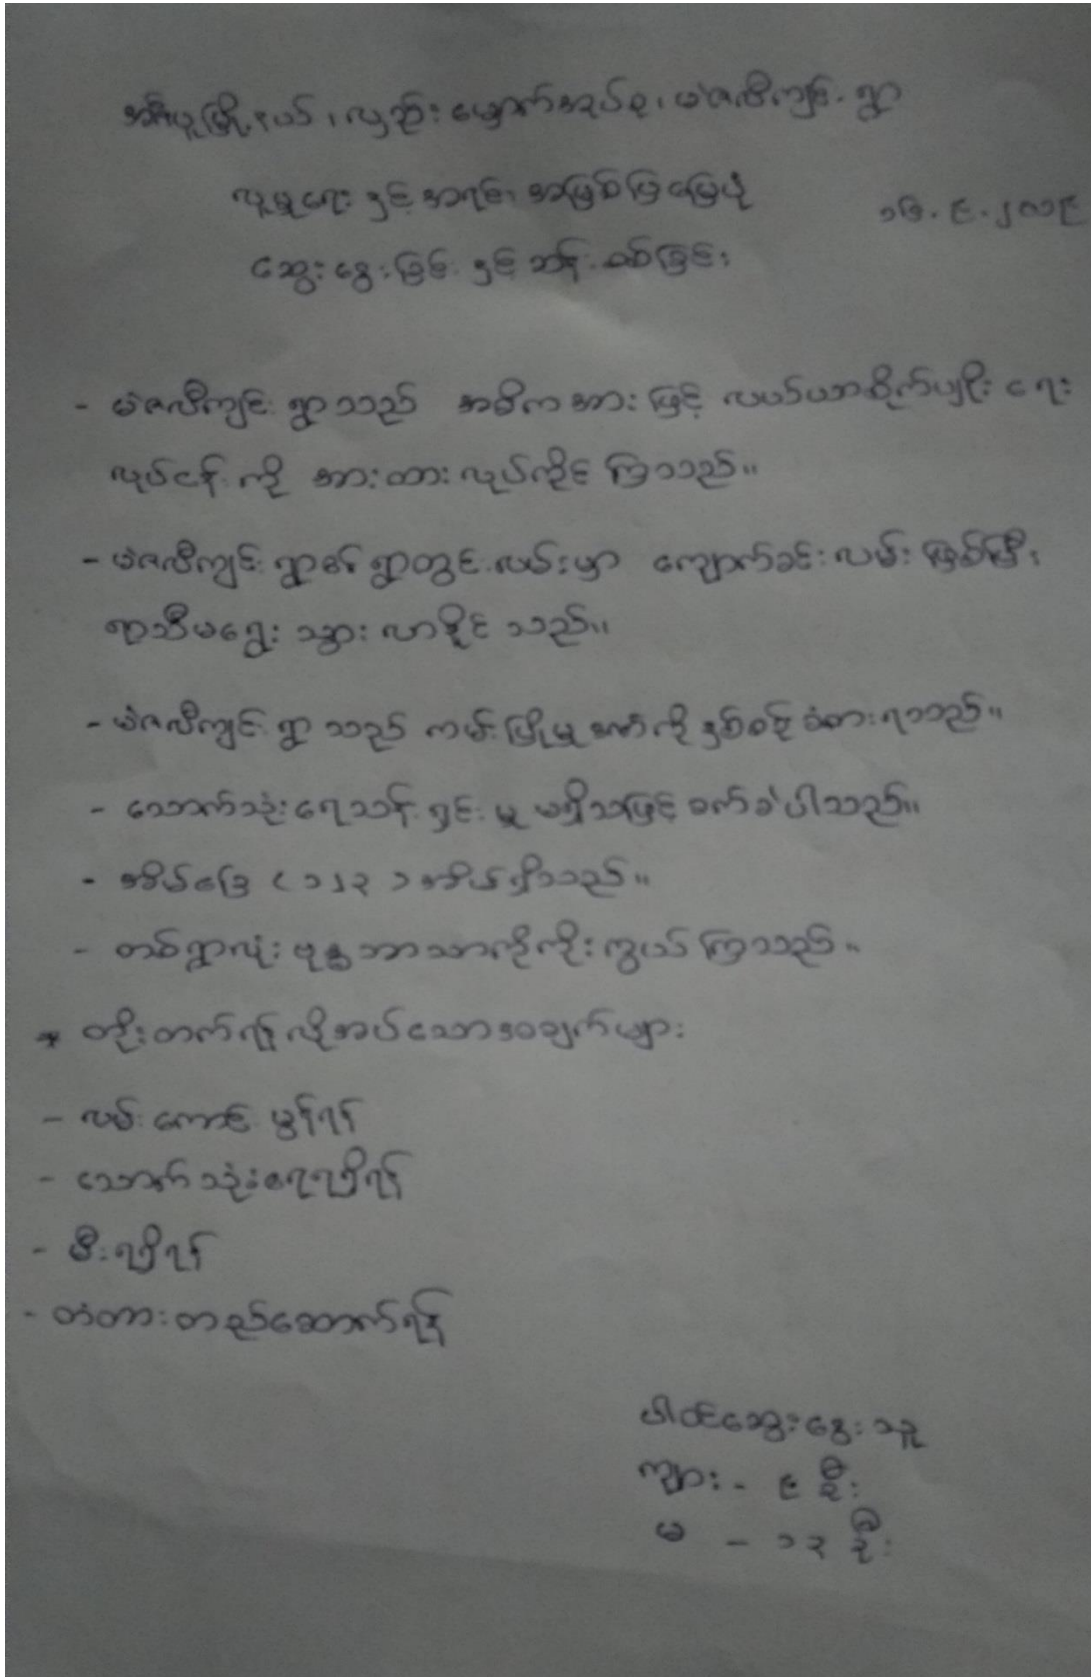 အင်္ဂပူမြို့နယ်၊ လှည်းမျှောက်အုပ်စု၊ မဲဇလီကျင်းရွာ
လူမှုရေးနှင့် အရင်းအမြစ်ပြမြေပုံ
၁၆.၉.၂၀၁၉
ဆွေးနွေးခြင်းနှင့် ဆန်းစစ်ခြင်း
- မဲဇလီကျင်းရွာသည် အဓိကအားဖြင့် လယ်ယာစိုက်ပျိုးရေး
လုပ်ငန်းကို အားထားလုပ်ကိုင်ကြသည်။
- မဲဇလီကျင်းရွာ၏ ရွာတွင်းလမ်းမှာ ကျောက်ခင်းလမ်းဖြစ်ပြီး
ရာသီမရွေး သွားလာနိုင်သည်။
- မဲဇလီကျင်းရွာသည် ကမ်းပြိုမှုဒဏ်ကို နှစ်စဉ် ခံစားရသည်။
- သောက်သုံးရေသန့်ရှင်းမှု မရှိသဖြင့် ခက်ခဲပါသည်။
- အိမ်ခြေ (၁၂၃) အိမ်ရှိသည်။
- တစ်ရွာလုံး ဗုဒ္ဓဘာသာကိုကိုးကွယ်ကြသည်။
* တိုးတက်ရန်လိုအပ်သောအချက်များ
- လမ်းကောင်းမွန်ရန်
- သောက်သုံးရေရရှိရန်
- မီးရရှိရန်
- တံတားတည်ဆောက်ရန်
ပါဝင်ဆွေးနွေးသူ
ကျား - ၉ ဦး
မ - ၁၃ ဦး